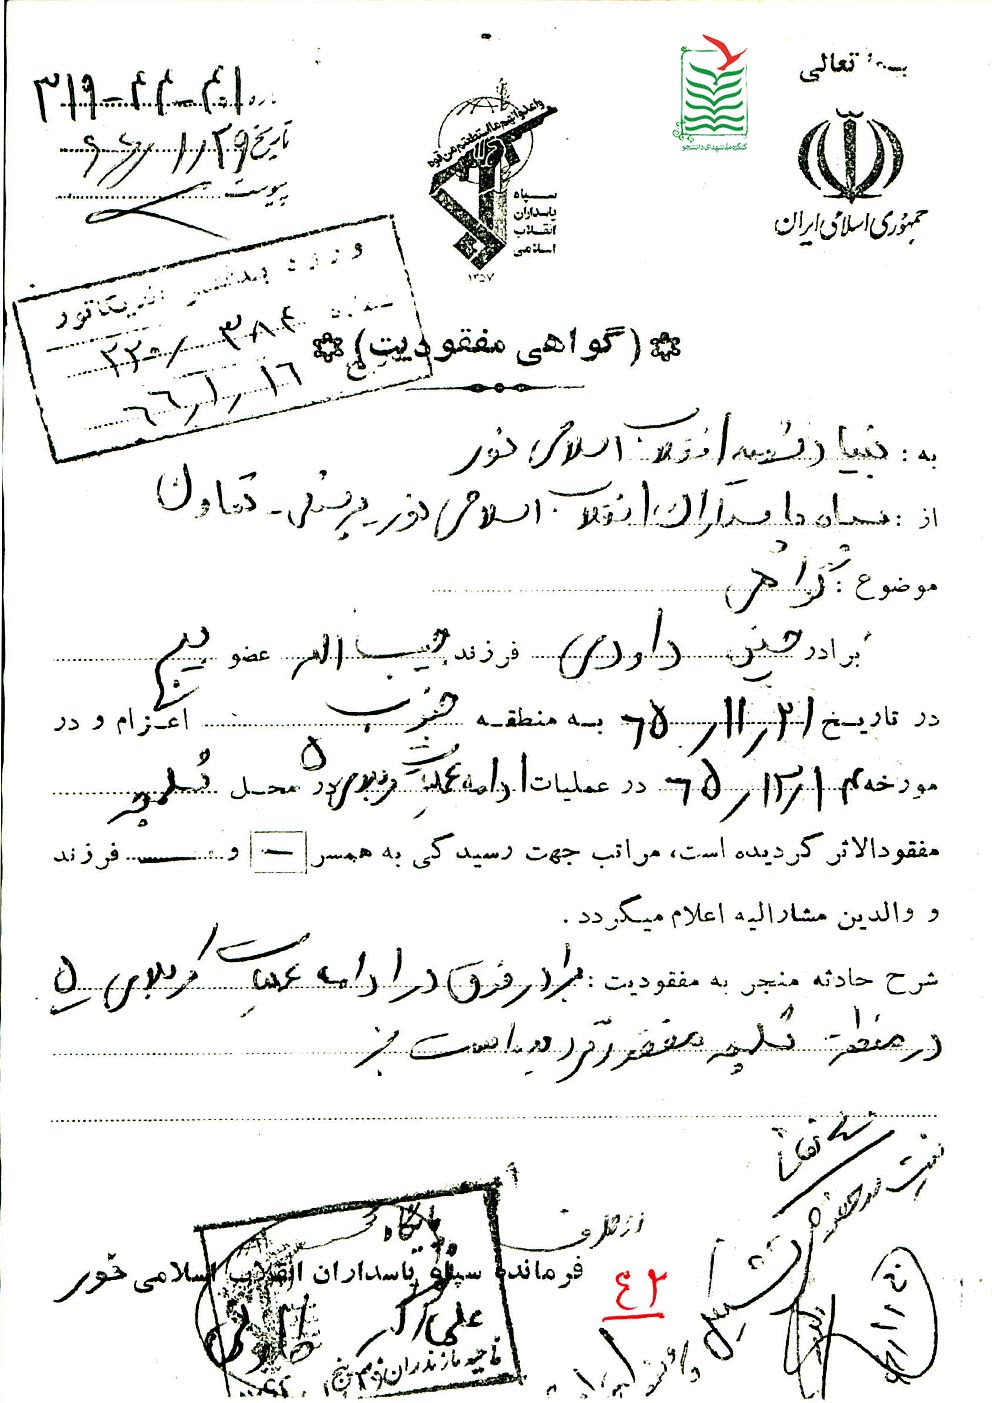 بسمه تعالی
جمهوری اسلامی ایران
کنگره ملی شهدای دانشجو
واعدوا لهم ما استطعتم من قوة
سپاه
پاسداران
انقلاب
اسلامی
۱۳۵۷
تاریخ ۶۶/۱/۲۹
پیوست
ورود بدفتر اندیکاتور
شماره ۳۸۴/۲۲۰
۶۶/۱/۱۶
(گواهی مفقودیت)
به : بنیاد شهید انقلاب اسلامی نور
از : سپاه پاسداران انقلاب اسلامی نور - پرسنلی - تعاون
موضوع : گواهی
برادر حسین داودی فرزند حبیب اله عضو بسیج
در تاریخ ۶۵/۱۱/۲۱ به منطقه جنوب اعزام و در
مورخه ۶۵/۱۲/۱۴ در عملیات ادامه عملیات کربلای ۵ در محل شلمچه
مفقودالاثر گردیده است، مراتب جهت رسیدگی به همسر — و — فرزند
و والدین مشارالیه اعلام میگردد .
شرح حادثه منجر به مفقودیت : برادر فوق در ادامه عملیات کربلای ۵
در منطقه شلمچه مفقود گردیده است
از طرف
فرمانده سپاه پاسداران انقلاب اسلامی نور
پایگاه
ناحیه مازندران
۴۲